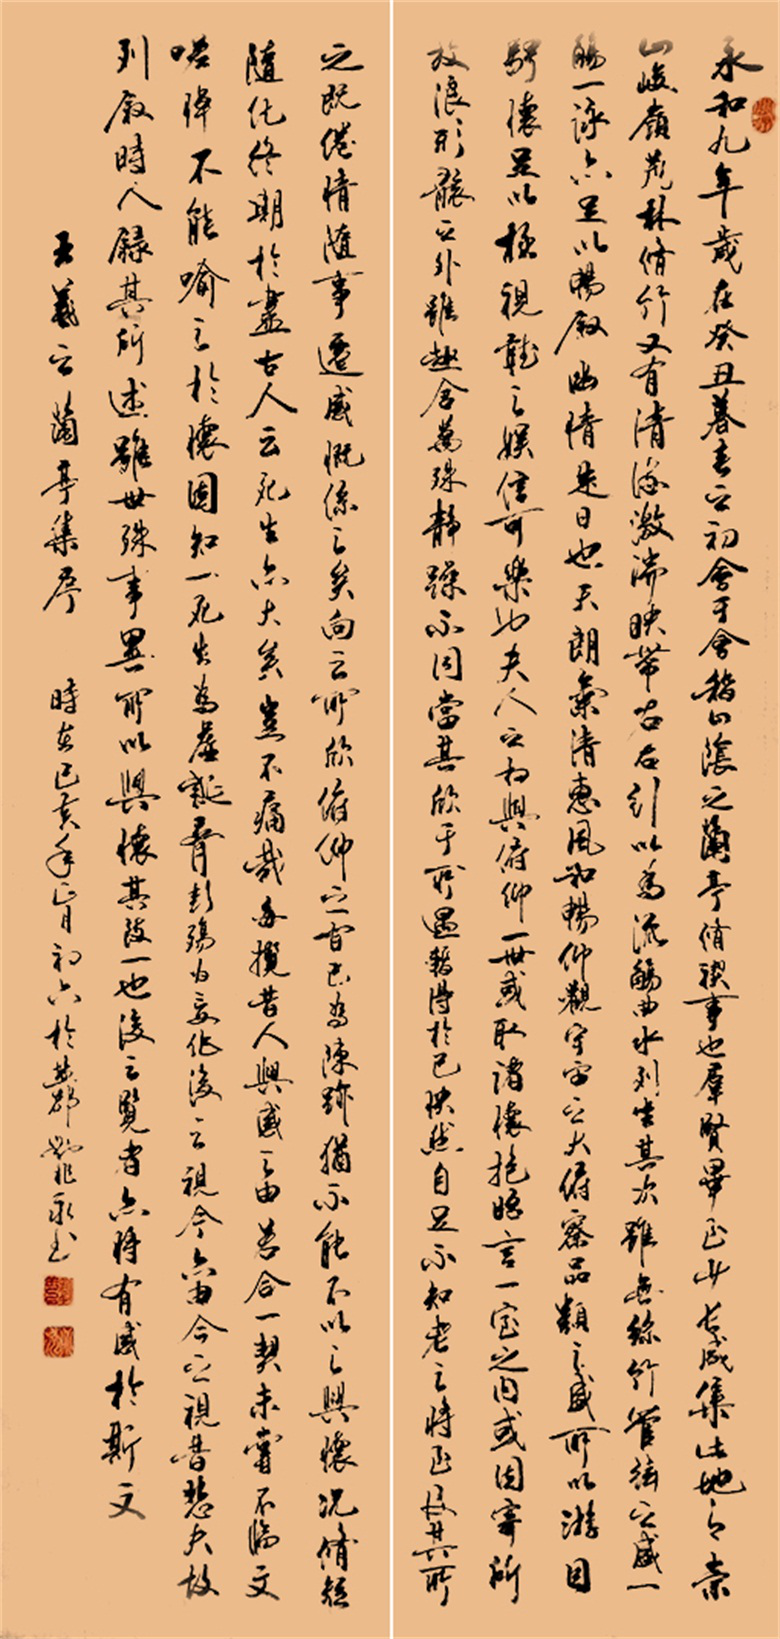 永和九年歲在癸丑暮春之初會于會稽山陰之蘭亭脩禊事也群賢畢至少長咸集此地有崇
山峻嶺茂林脩竹又有清流激湍映帶左右引以為流觴曲水列坐其次雖無絲竹管弦之盛一
觴一詠亦足以暢敘幽情是日也天朗氣清惠風和暢仰觀宇宙之大俯察品類之盛所以游目
騁懷足以極視聽之娛信可樂也夫人之相與俯仰一世或取諸懷抱晤言一室之內或因寄所
放浪形骸之外雖趣舍萬殊靜躁不同當其欣于所遇暫得於己快然自足不知老之將至及其所
之既倦情隨事遷感慨係之矣向之所欣俯仰之間已為陳跡猶不能不以之興懷況脩短
隨化終期於盡古人云死生亦大矣豈不痛哉每攬昔人興感之由若合一契未嘗不臨文
嗟悼不能喻之於懷固知一死生為虛誕齊彭殤為妄作後之視今亦由今之視昔悲夫故
列敘時人錄其所述雖世殊事異所以興懷其致一也後之覽者亦將有感於斯文
王羲之蘭亭集序 時在己亥年正月初六於